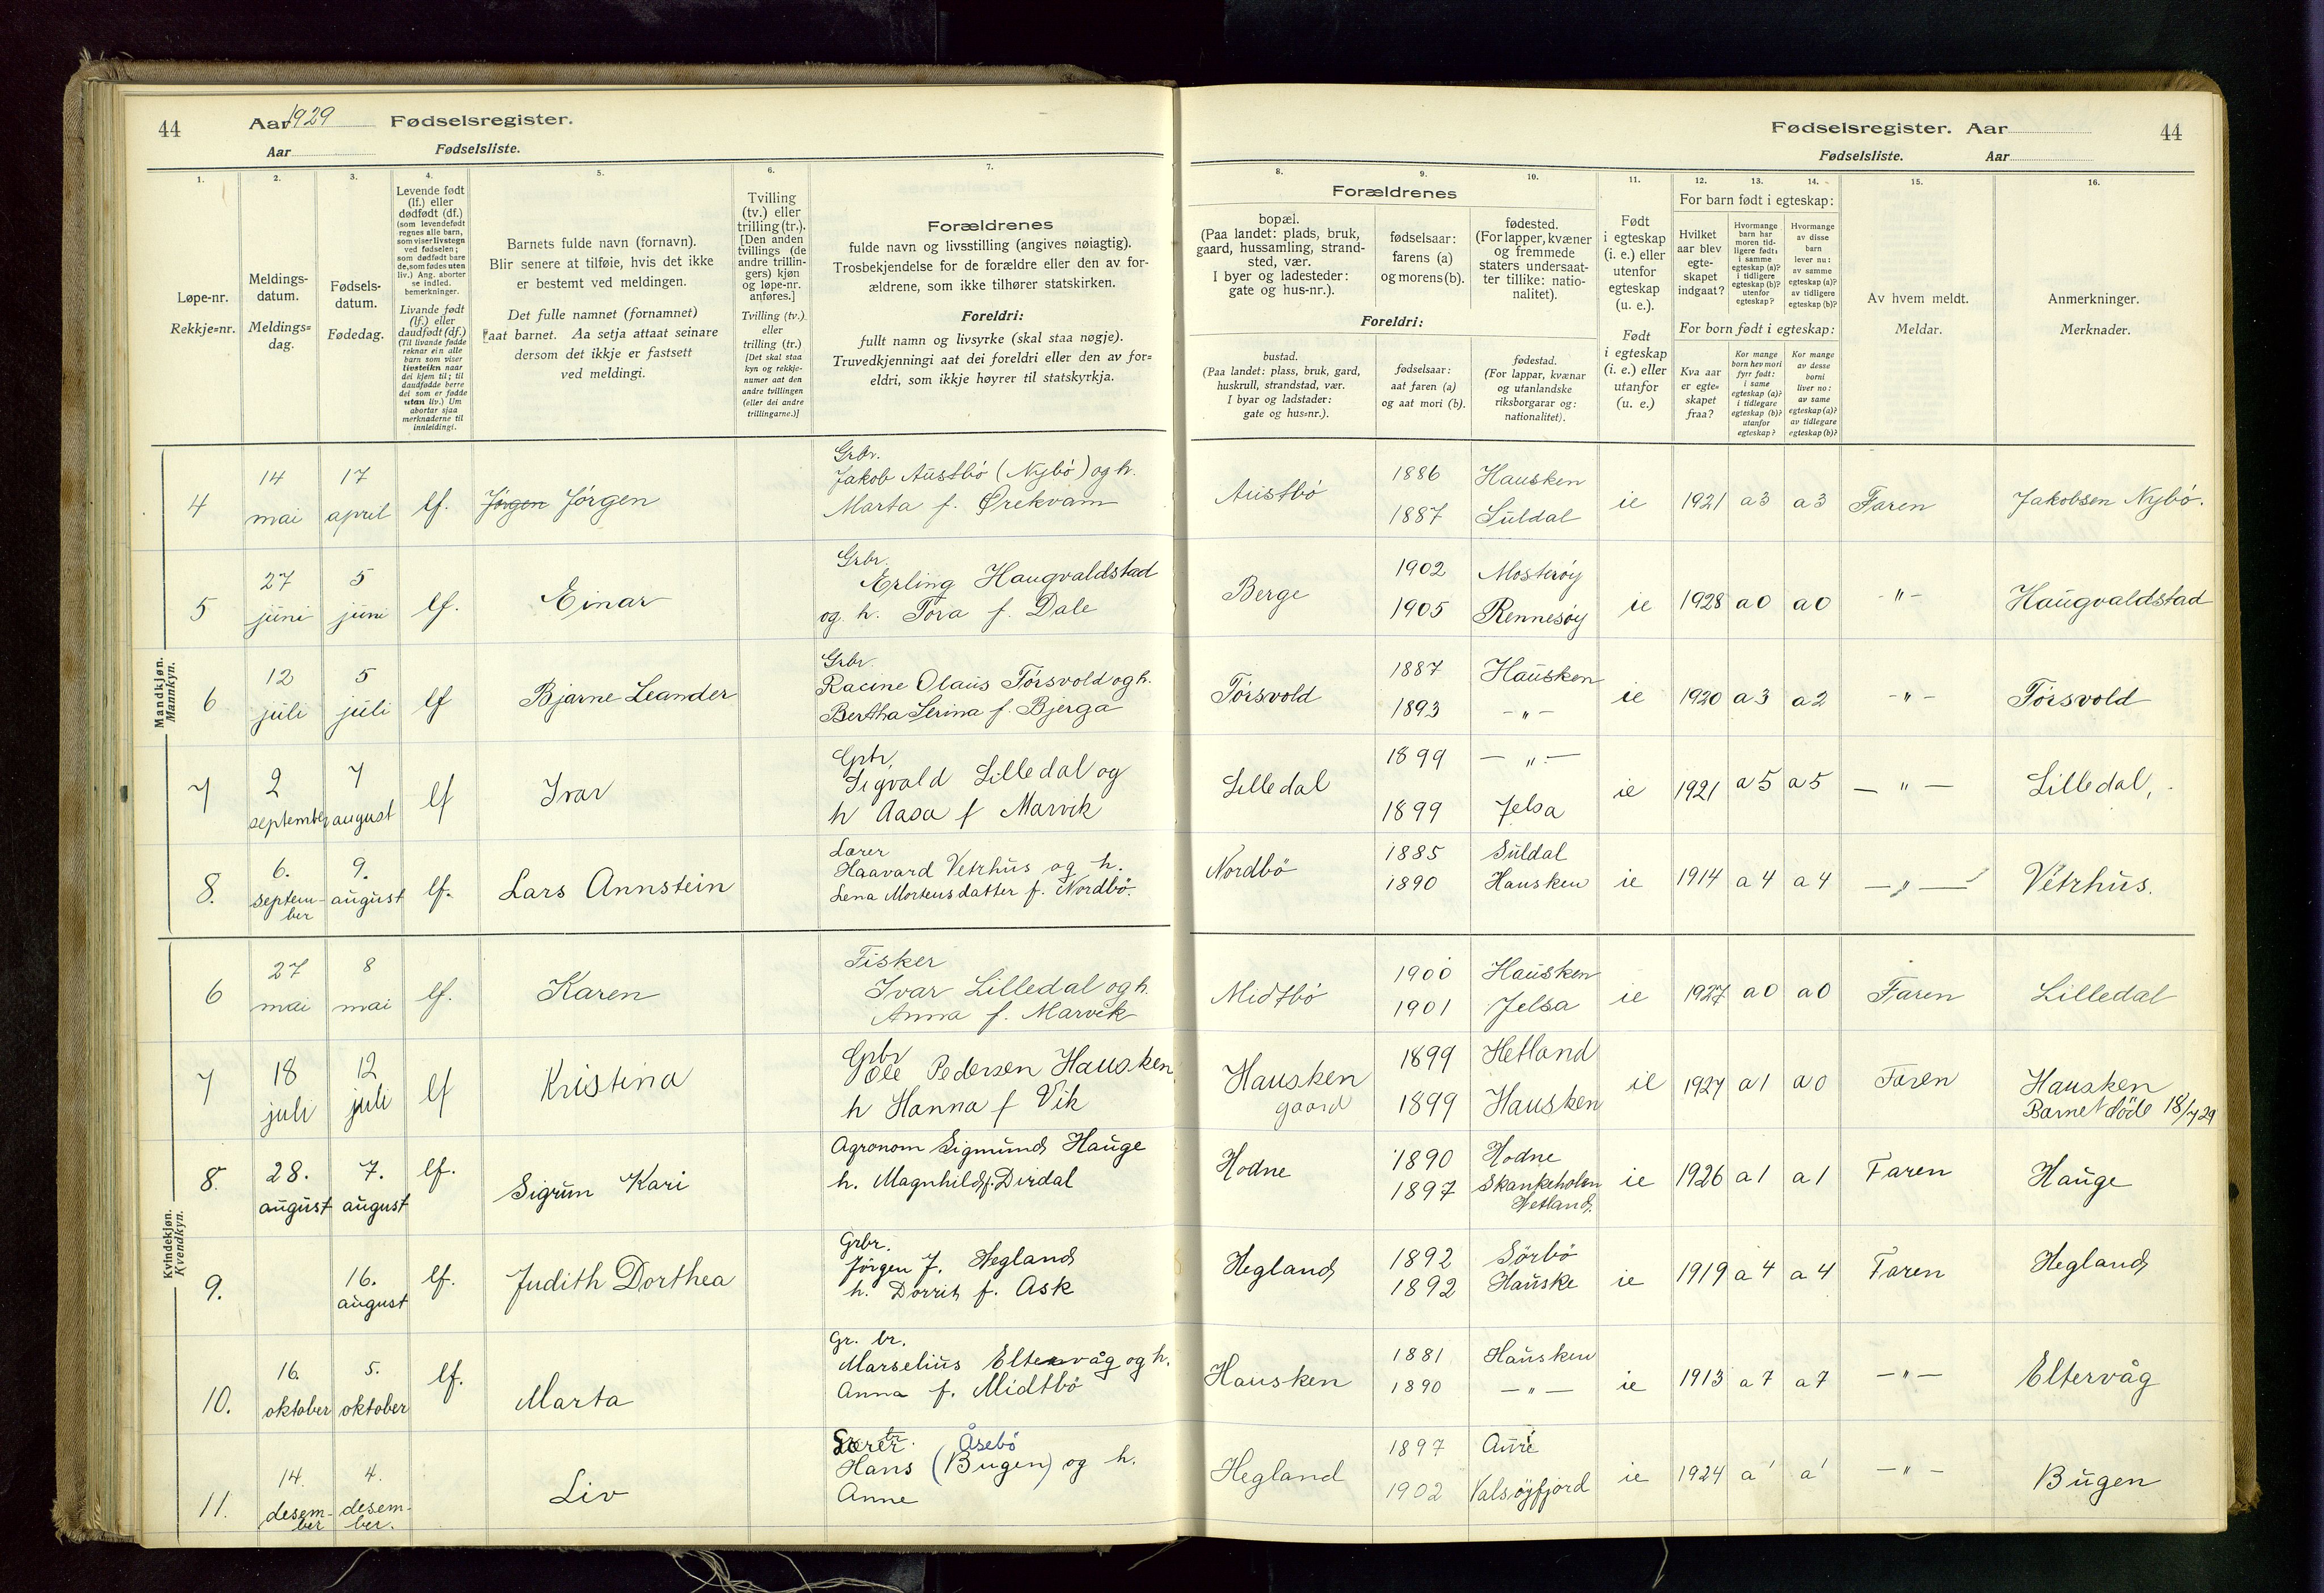 44 Aar 1929 Fødselsregister.
Aar Fødselsliste.
1. 2. 3. 4. 5. 6. 7.
Løpe-nr.
Rekkje=nr.
Meldings-
datum.
Meldings=
dag.
Fødsels-
datum.
Fødedag.
Levende født
(lf.) eller
dødfødt (df.)
(som levendefødt
regnes alle barn,
som viser livstegn
ved fødselen;
som dødfødt bare
de, som fødes uten
liv.) Ang. aborter
se indled.
bemerkninger.
Livande født
(lf.) eller
daudfødt (df.)
(Til livande fødde
reknar ein alle
barn som viser
livsteikn naar
dei kjem til; til
daudfødde berre
dei som er fødde
utan liv.) Um
abortar sjaa
merknaderne til
innleidingi.
Barnets fulde navn (fornavn).
Blir senere at tilføie, hvis det ikke
er bestemt ved meldingen.
Det fulle namnet (fornamnet)
aat barnet. Aa setja attaat seinare
dersom det ikkje er fastsett
ved meldingi.
Tvilling
(tv.) eller
trilling (tr.).
[Den anden
tvillings (de
andre trillin-
gers) kjøn
og løpe-nr.
anføres.]
Tvilling (tv.)
eller
trilling (tr.)
[Det skal staa
kyn og rekkje-
numer aat den
andre tvillingen
(eller dei andre
trillingarne.)]
Forældrenes
fulde navn og livsstilling (angives nøiagtig).
Trosbekjendelse for de forældre eller den av for-
ældrene, som ikke tilhører statskirken.
Foreldri:
fullt namn og livsyrke (skal staa nøgje).
Truvedkjenningi aat dei foreldri eller den av for=
eldri, som ikkje høyrer til statskyrkja.
Fødselsregister. Aar 44
Fødselsliste. Aar
8. 9. 10. 11. 12. 13. 14. 15. 16.
Forældrenes
bopæl.
(Paa landet: plads, bruk,
gaard, hussamling, strand-
sted, vær.
I byer og ladesteder:
gate og hus-nr.).
fødselsaar:
farens (a)
og morens (b).
fødested.
(For lapper, kvæner
og fremmede
staters undersaat-
ter tillike: natio-
nalitet).
Foreldri:
bustad.
(Paa landet: plass, bruk, gard,
huskrull, strandstad, vær.
I byar og ladstader:
gate og hus=nr.).
fødselsaar:
aat faren (a)
og aat mori (b).
fødestad.
(For lappar, kvænar
og utanlandske
riksborgarar og:
nationalitet).
Født
i egteskap
(i. e.) eller
utenfor
egteskap
(u. e.).
Født
i egteskap
(i. e.) eller
utanfor
(u. e.)
For barn født i egteskap:
Hvilket
aar blev
egte-
skapet
indgaat?
Hvormange
barn har
moren tid-
ligere født:
i samme
egteskap (a)?
i tidligere
egteskap (b)?
utenfor
egteskap?
Hvormange
av disse
barn
lever nu:
av samme
egteskap (a)?
av tidligere
egteskap (b)?
For born født i egteskap:
Kva aar
er egte=
skapet
fraa?
Kor mange
born hev mori
fyrr født:
i same
egteskap (a)?
i tidlegare
egteskap (b)?
utanfor
egteskap?
Kor mange
av desse
borni
liver no:
av same
egteskap (a)?
av tidlegare
egteskap (b)?
Av hvem meldt.
Meldar.
Anmerkninger.
Merknader.
Mandkjøn.
Mannkyn.
4 14 mai 17 april lf. Jörgen Jörgen
Grbr.
Jakob Austbö (Nybö) og h.
Marta f. Ørekvam
Austbö 1886 Hausken
1887 Suldal
ie 1921 a3 a3 Faren Jakobsen Nybö.
5 27 juni 5 juni lf. Einar
Grbr.
Erling Haugvaldstad
og h. Tora f. Dale
Berge 1902 Mosterøy
1905 Rennesøy
ie 1928 a0 a0 -"- Haugvaldstad
6 12 juli 5 juli lf Bjarne Leander
Grbr.
Racine Olaus Törsvold og h.
Bertha Serina f. Bjerga
Törsvold 1887 Hausken
1893 -"-
ie 1920 a3 a2 -"- Törsvold
7 2 september 7 august lf Ivar
Grbr.
Sigvald Lilledal og
h Aasa f Marvik
Lilledal 1899 -"-
1899 Jelsa
ie 1921 a5 a5 -"- Lilledal,
8. 6. septem-
ber 9. august lf. Lars Annstein
Lærer
Haavard Vetrhus og h.
Lena Mortensdatter f. Nordbö.
Nordbö 1885 Suldal
1890 Hausken
ie 1914 a4 a4 -"- Vetrhus.
Kvindekjøn.
Kvendkyn.
6 27 mai 8 mai lf. Karen
Fisker
Ivar Lilledal og h.
Anna f. Marvik
Midtbö 1900 Hausken
1901 Jelsa
ie 1927 a0 a0 Faren Lilledal
7 18 juli 12 juli lf Kristina
Grbr
Ole Pedersen Hausken
h Hanna f Vik
Hausken
gaard
1899 Hetland
1899 Hausken
ie 1927 a1 a0 Faren Hausken
Barnet döde 18/7 29
8. 28. august 7. august lf. Sigrun Kari
Agronom Sigmund Hauge
h. Magnhild f. Dirdal
Hodne 1890 Hodne
1897 Skankeholm
Hetland.
ie 1926 a1 a1 Faren Hauge
9. 16. august lf. Judith Dorthea
Grbr.
Jörgen J. Hegland
h. Dorrit f. Ask
Hegland 1892 Sörbö
1892 Hauske
ie 1919 a4 a4 Faren Hegland
10. 16. oktober 5. oktober lf. Marta
Gr. br.
Marselius Eltervåg og h.
Anna f. Midtbö
Hausken 1881 Hausken
1890 -"-
ie 1913 a7 a7 -"- Eltervåg
11. 14. desem-
ber 4. desem-
ber. Liv
Åsebö
Hans (Bugen) og h.
Anne
Hegland 1897 Aure
1902 Valsøyfjord
ie 1924 a1 a1 -"- Bugen